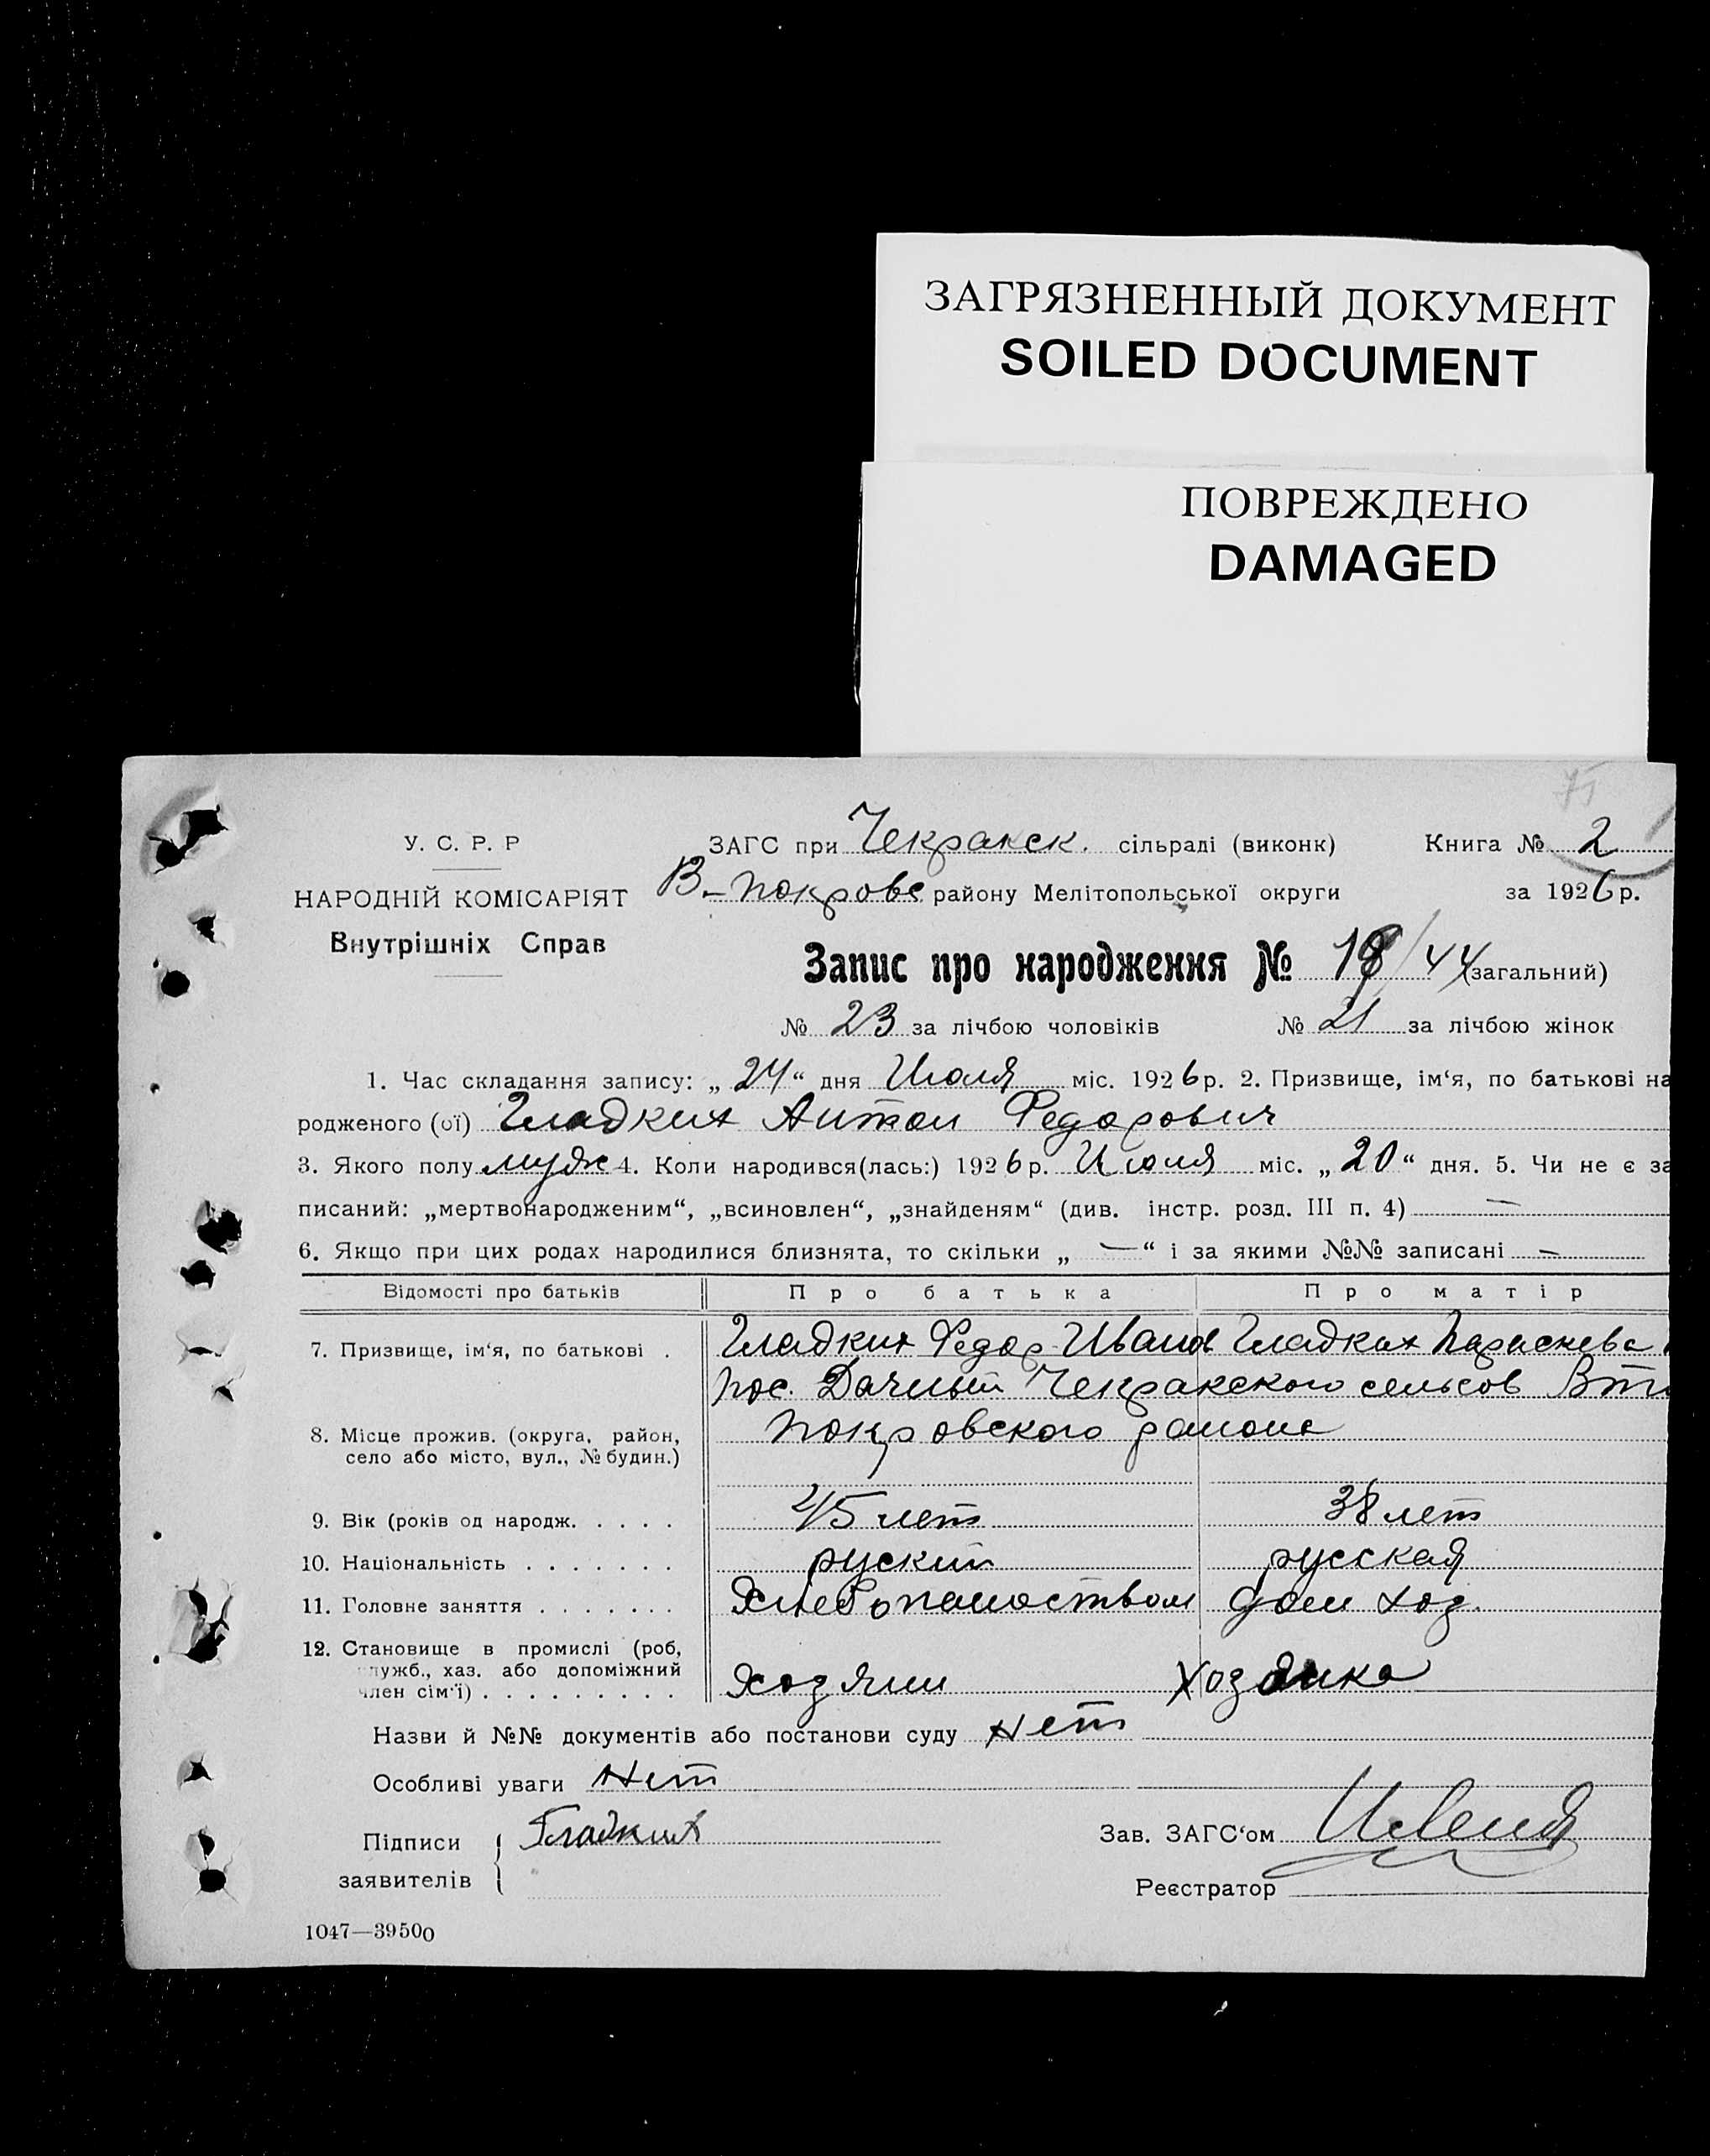 ЗАГРЯЗНЕННЫЙ ДОКУМЕНТ
SOILED DOCUMENT
ПОВРЕЖДЕНО
DAMAGED
У. С. Р. Р
НАРОДНІЙ КОМІСАРІЯТ
Внутрішніх Справ
ЗАГС при Чекракск. сільраді (виконк) Книга № 2
В-Покровс району Мелітопольської округи за 1926 р.
Запис про народження № 44 (загальний)
№ 23 за лічбою чоловіків № 21 за лічбою жінок
1. Час складання запису: „24“ дня Июля міс. 1926 р. 2. Призвище, ім‘я, по батькові на
родженого (ої) Гладких Антон Федорович
3. Якого полу мужс 4. Коли народився(лась:) 1926 р. Июля міс. „20“ дня. 5. Чи не є за
писаний: „мертвонародженим“, „всиновлен“, „знайденям“ (див. інстр. розд. III п. 4) —
6. Якщо при цих родах народилися близнята, то скільки „ — “ і за якими №№ записані —
Відомості про батьків Про батька Про матір
7. Призвище, ім‘я, по батькові . Гладких Федор Иванов Гладких Параскева
пос. Дачный Чекракского сельсов Вто
8. Місце прожив. (округа, район, Покровского района
село або місто, вул., № будин.)
9. Вік (років од народж. . . . . 45 лет 38 лет
10. Національність . . . . . . . руский русская
11. Головне заняття . . . . . . . Хлебопашеством дом хоз.
12. Становище в промислі (роб,
служб., хаз. або допоміжний
член сім‘ї) . . . . . . . . . Хозяин Хозяика
Назви й №№ документів або постанови суду Нет
Особливі уваги Нет
Підписи Гладких Зав. ЗАГС‘ом
заявителів Реєстратор
1047—39500